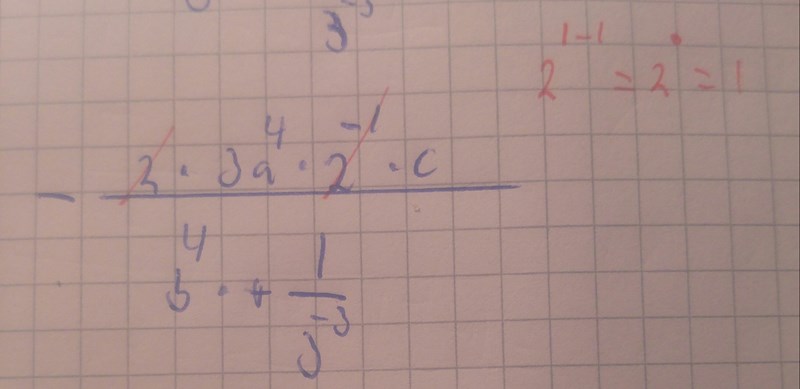 3^-3
2^1-1 = 2^0 = 1
- 2 · 3a^4 · 2^-1 · c
b^4 · + 1
3^-3